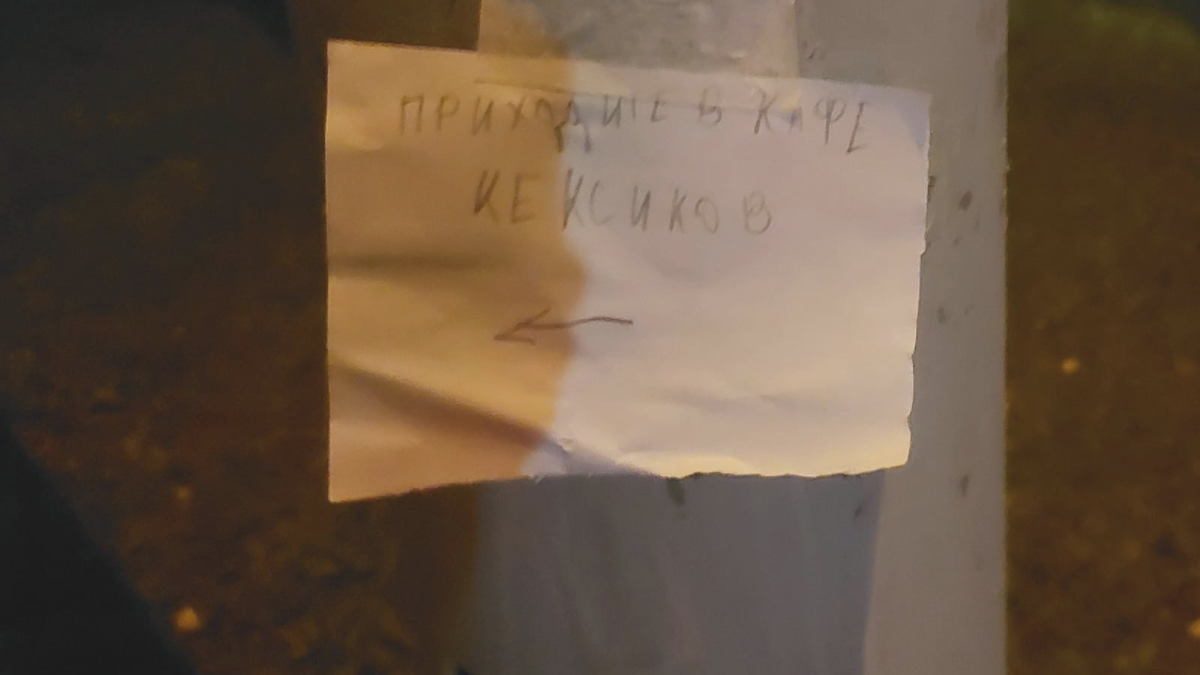 ПРИХОДИТЕ В КАФЕ
КЕКСИКОВ